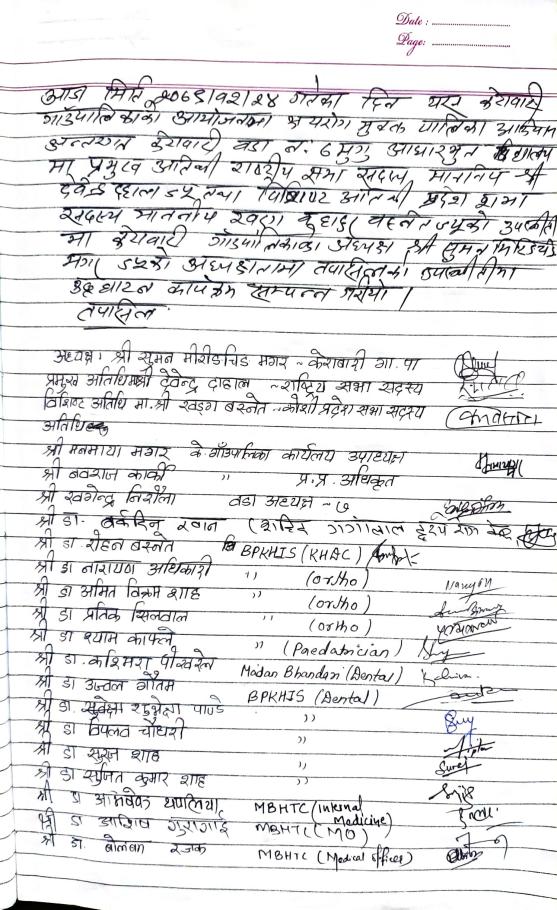 Date :
Page:
आज मिति २०८१/१२/२४ गतेका दिन यस केराबारी
गाउँपालिकाको आयोजनामा क्षयरोग मुक्त पालिका अभियान
अन्तरगत केराबारी वडा नं. ६ मुगु आधारभुत विद्यालय
मा प्रमुख अतिथी राष्ट्रीय सभा सदस्य माननिय श्री
देवेन्द्र दाहाल ज्यू तथा विशिष्ट अतिथी प्रदेश सभा
सदस्य माननीय खड्ग बस्नेत ज्यूको उपस्थिती
मा केराबारी गाउँपालिकाका अध्यक्ष श्री सुमन
मगर ज्यूको अध्यक्षतामा तपासिलका उपस्थितीमा
उद्घाटन कार्यक्रम सम्पन्न गरीयो ।
तपासिल
अध्यक्ष: श्री सुमन मीरीङचिङ मगर - केराबारी गा. पा
प्रमुख अतिथि मा.श्री देवेन्द्र दाहाल - राष्ट्रिय सभा सदस्य
विशिष्ट अतिथि मा. श्री खड्ग बस्नेत - कोशी प्रदेश सभा सदस्य
अतिथि
श्री मनमाया मगर के. गाँउपालिका कार्यालय उपाध्यक्ष
श्री नवराज कार्की " प्र. प्र. अधिकृत
श्री खगेन्द्र निरौला वडा अध्यक्ष - ७
श्री डा. खान (शहिद गंगालाल
श्री डा. रोहन बस्नेत BPKHIS (KHAC)
श्री डा नारायण अधिकारी " (ortho)
श्री डा अमित विक्रम शाह " (ortho)
श्री डा प्रतिक सिलवाल " (ortho)
श्री डा श्याम काफ्ले " (Paedatrician)
श्री डा. कश्मिरा पोखरेल Madan Bhandari (Dental)
श्री डा उज्वल गौतम BPKHIS (Dental)
श्री डा. सुवेक्षा पाण्डे "
श्री डा विप्लव चौधरी "
श्री डा सुरज शाह "
श्री डा सुजित कुमार शाह "
श्री डा अभिषेक थपलिया MBHTC (Internal Medicine)
श्री डा आशिष गुरागाई MBHTC (MO)
श्री डा. रजक MBHTC (Medical officer)